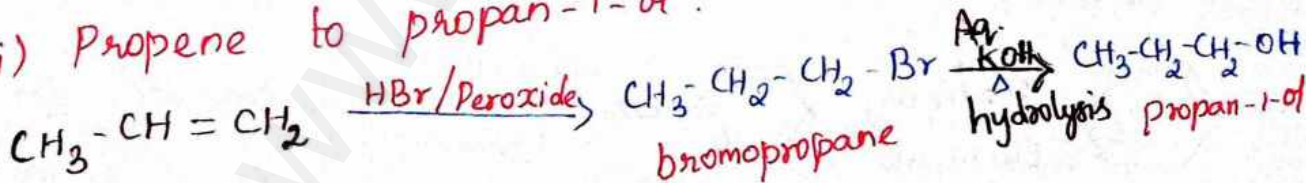 i) Propene to propan-1-ol.
CH₃-CH=CH₂ HBr/Peroxide CH₃-CH₂-CH₂-Br Aq. KOH Δ CH₃-CH₂-CH₂-OH
bromopropane hydrolysis propan-1-ol